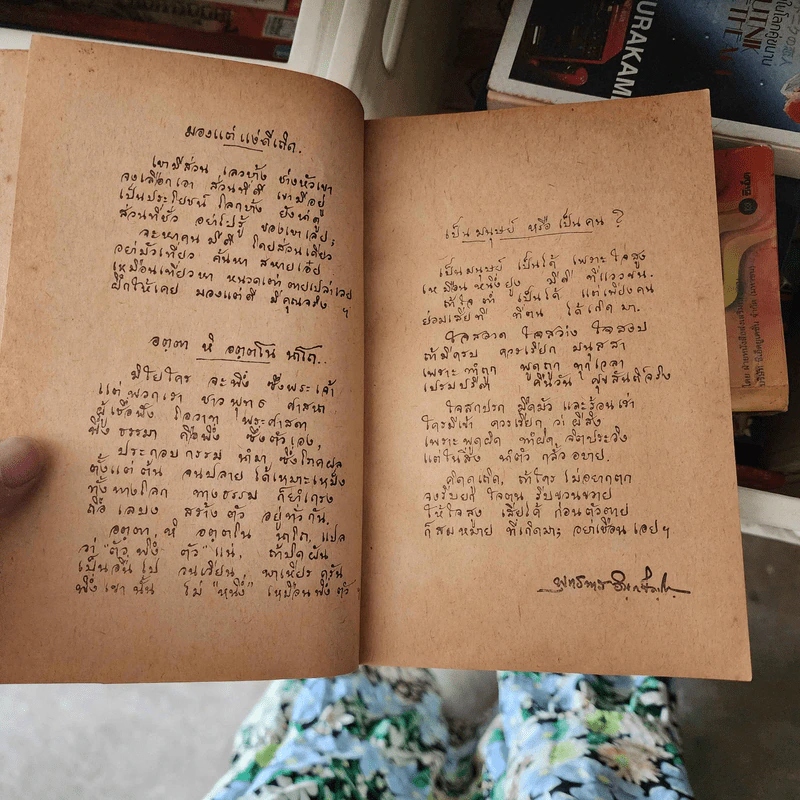 มองแต่ แง่ดีเถิด.
เขามีส่วน เลวบ้าง ช่างหัวเขา
จงเลือกเอา ส่วนที่ดี เขามีอยู่
เป็นประโยชน์ โลกบ้าง ยังน่าดู
ส่วนที่ชั่ว อย่าไปรู้ ของเขาเลย;
จะหาคน มีดี โดยส่วนเดียว
อย่ามัวเที่ยว ค้นหา สหายเอ๋ย
เหมือนเที่ยวหา หนวดเต่า ตายเปล่าเลย
ฝึกให้เคย มองแต่ดี มีคุณจริง ฯ
อตฺตา หิ อตฺตโน นาโถ..
มิใยใคร จะพึ่ง ซึ่งพระเจ้า
แต่พวกเรา ชาวพุทธ ศาสนา
ผู้เชื่อฟัง โอวาท พระศาสดา
พึ่งธรรมา คือพึ่ง ซึ่งตัวเอง,
ประกอบกรรม นำมา ซึ่งโภคผล
ตั้งแต่ต้น จนปลาย ได้เหมาะเหม็ง
ทั้งทางโลก ทางธรรม ก็ยำเกรง
ถือ เลบง สร้างตัว อยู่ทั่วกัน.
อตฺตา หิ อตฺตโน นาโถ, แปล
ว่า "ตัวพึ่ง ตัว" แน่, ถ้าปิดผัน
เป็นอื่นไป วนเวียน, พาเหียร ครัน
พึ่งเขานั้น ไม่ "หนึ่ง" เหมือนพึ่งตัว ฯ
เป็นมนุษย์ หรือ เป็นคน ?
เป็นมนุษย์ เป็นได้ เพราะใจสูง
เหมือนหนึ่งยูง มีดี ที่แววขน.
ถ้าใจต่ำ เป็นได้ แต่เพียงคน
ย่อมเสียที ที่ตน ได้เกิดมา.
ใจสอาด ใจสว่าง ใจสงบ
ถ้ามีครบ ควรเรียก มนุสสา
เพราะทำถูก พูดถูก ทุกเวลา
เปรมปรีดา คืนวัน ศุขสันติ์จริง
ใจสกปรก มืดมัว และร้อนเร่า
ใครมีเข้า ควรเรียก ว่าผีสิง
เพราะพูดผิด ทำผิด, จิตประวิง
แต่ในสิ่ง นำตัว กลั้วอบาย.
คิดดูเถิด, ถ้าใคร ไม่อยากตก
จงรีบยก ใจตน รีบขวนขวาย
ให้ใจสูง เสียได้ ก่อนตัวตาย
ก็สมหมาย ที่เกิดมา; อย่าเชือนเอย ฯ
พุทธทาส อินฺทปญฺโญ.
URAKAMI
ซีเอ็ด